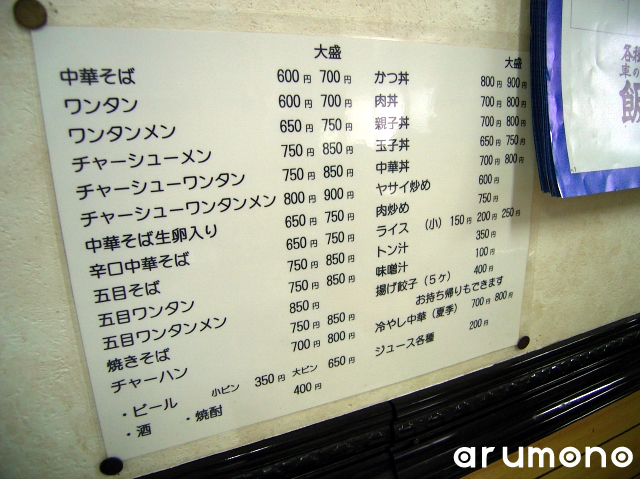 大盛
中華そば 600円 700円
ワンタン 600円 700円
ワンタンメン 650円 750円
チャーシューメン 750円 850円
チャーシューワンタン 750円 850円
チャーシューワンタンメン 800円 900円
中華そば生卵入り 650円 750円
辛口中華そば 650円 750円
五目そば 750円 850円
五目ワンタン 750円 850円
五目ワンタンメン 850円
焼きそば 750円 850円
チャーハン 700円 800円
・ビール 小ビン 350円 大ビン 650円
・酒 ・焼酎 400円
大盛
かつ丼 800円 900円
肉丼 700円 800円
親子丼 700円 800円
玉子丼 650円 750円
中華丼 700円 800円
ヤサイ炒め 600円
肉炒め 750円
ライス (小) 150円 200円 250円
トン汁 350円
味噌汁 100円
揚げ餃子(5ヶ) 400円
お持ち帰りもできます
冷やし中華(夏季) 700円 800円
ジュース各種 200円
各種
車の
飯
arumono